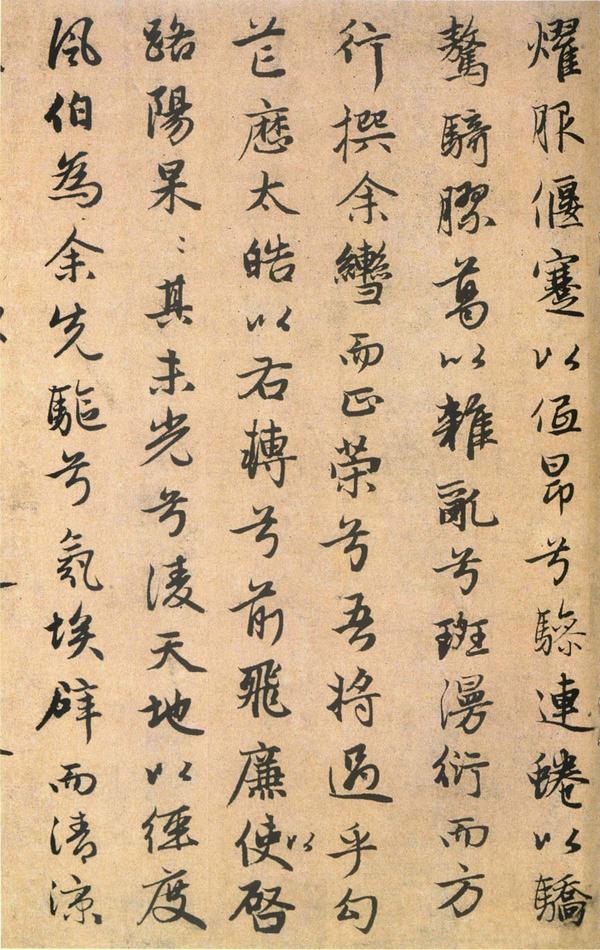 燿服偃蹇以低昂兮驂連蜷以驕
驁騎膠葛以雜亂兮班漫衍而方
行撰余轡而正策兮吾將過乎勾
芒歷太皓以右轉兮前飛廉使以啓
路陽杲〻其未光兮淩天地以徑度
風伯為余先驅兮氛埃辟而清涼